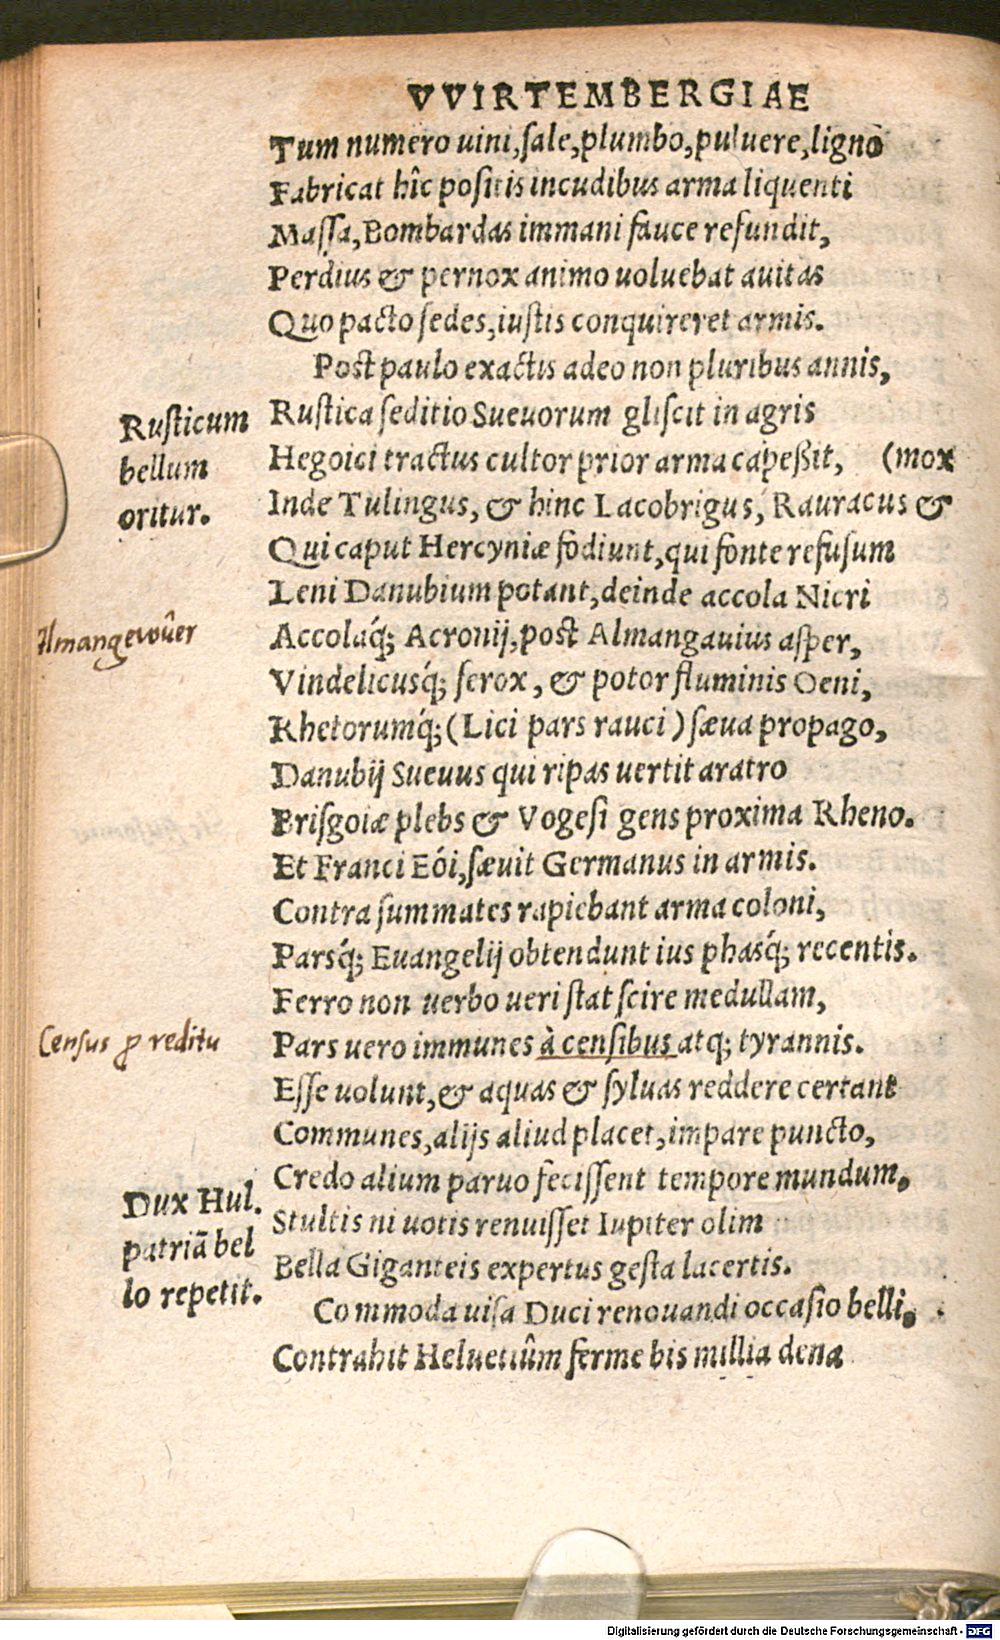 VVIRTEMBERGIAE
Tum numero uini, sale, plumbo, puluere, ligno
Fabricat hîc positis incudibus arma liquenti
Massa, Bombardas immani fauce refundit,
Perdius & pernox animo uoluebat auitas
Quo pacto sedes, iustis conquireret armis.
Post paulo exactis adeo non pluribus annis,
Rusticum
bellum
oritur.
Rustica seditio Sueuorum gliscit in agris
Hegoici tractus cultor prior arma capeßit, (mox
Inde Tulingus, & hinc Lacobrigus, Rauracus &
Qui caput Hercyniæ fodiunt, qui fonte refusum
Leni Danubium potant, deinde accola Nicri
Almangewûer
Accolaq́; Acronij, post Almangauius asper,
Vindelicusq́; ferox, & potor fluminis Oeni,
Rhetorumq́; (Lici pars rauci) sæua propago,
Danubij Sueuus qui ripas uertit aratro
Brisgoiæ plebs & Vogesi gens proxima Rheno.
Et Franci Eói, sæuit Germanus in armis.
Contra summates rapiebant arma coloni,
Parsq́; Euangelij obtendunt ius phasq́; recentis.
Ferro non uerbo ueri stat scire medullam,
Census ꝓ reditu
Pars uero immunes à censibus atq; tyrannis.
Esse uolunt, & aquas & syluas reddere certant
Communes, alijs aliud placet, impare puncto,
Credo alium paruo fecissent tempore mundum,
Dux Hul.
patriã bel
lo repetit.
Stultis ni uotis renuisset Iupiter olim
Bella Giganteis expertus gesta lacertis.
Commoda uisa Duci renouandi occasio belli,
Contrahit Heluetiûm ferme bis millia dena
Digitalisierung gefördert durch die Deutsche Forschungsgemeinschaft - DFG